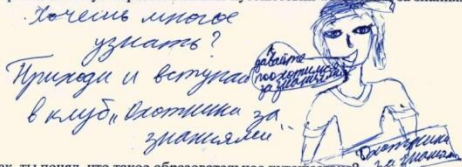 Хочешь многое
узнать?
Приходи и вступай
в клуб „Охотники за
знаниями"
давайте
поохотимся
за знаниями
Охотники
за знаниями